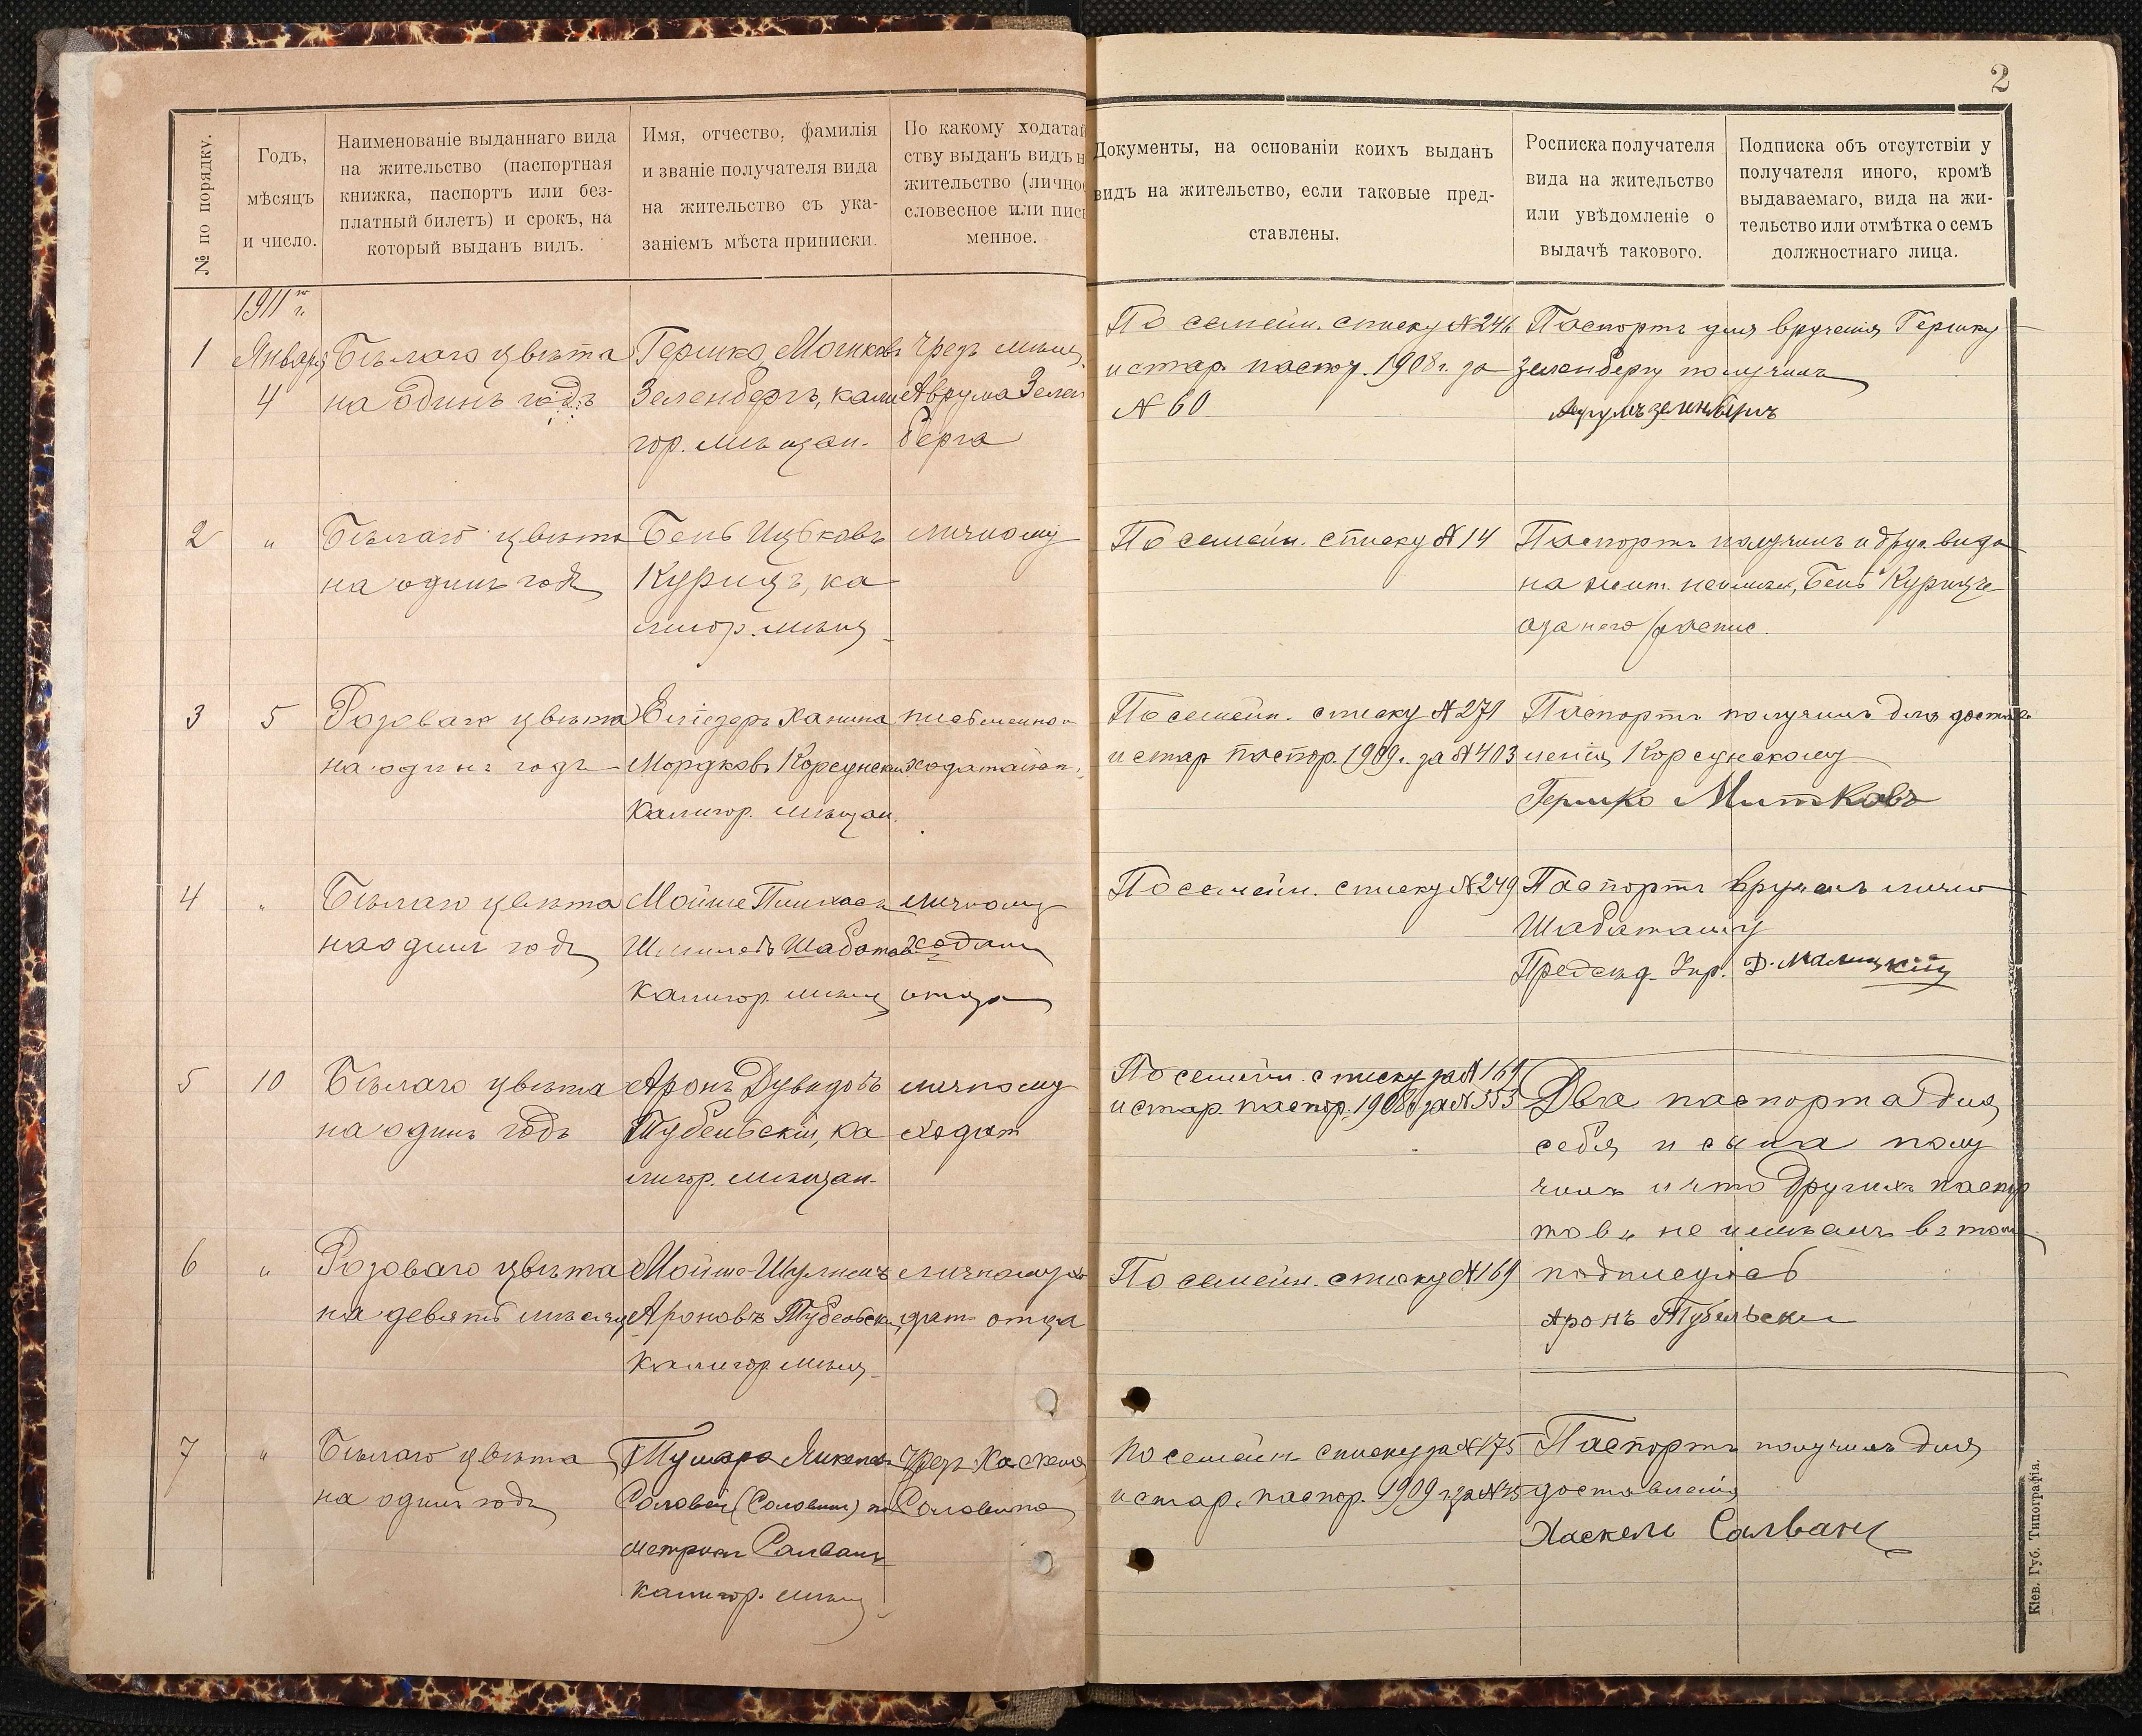 2
№ по порядку.
Годъ,
мѣсяцъ
и число.
Наименованіе выданнаго вида
на жительство (паспортная
книжка, паспортъ или без-
платный билетъ) и срокъ, на
который выданъ видъ.
Имя, отчество, фамилія
и званіе получателя вида
на жительство съ ука-
заніемъ мѣста приписки.
По какому ходатай
ству выданъ видъ н
жительство (лично
словесное или пись
менное.
Документы, на основаніи коихъ выданъ
видъ на жительство, если таковые пред-
ставлены.
Росписка получателя
вида на жительство
или увѣдомленіе о
выдачѣ такового.
Подписка объ отсутствіи у
получателя иного, кромѣ
выдаваемаго, вида на жи-
тельство или отмѣтка о семъ
должностнаго лица.
1911 г.
1
Января
4
Бѣлаго цвѣта
на одинъ годъ
Гершко Мошковъ
Зеленбергъ, кали
гор. мѣщан.
Чрезъ мѣщ.
Аврума Зелен
берга
По семейн. списку № 246
и стар. паспор. 1908 г. за
№ 60
Паспортъ для врученія Гершку
Зеленбергу получилъ
Аврумъ Зеленбергъ
2
"
Бѣлаго цвѣта
на одинъ годъ
Бень Ицьковъ
Курицъ, ка
лигор. мѣщ
личному
По семейн. списку № 14
Паспортъ получилъ и друг. вида
на жит. не имѣлъ, Бень Курицъ
а за него роспис.
3
5
Розоваго цвѣта
на одинъ годъ
Еліезеръ Ханина
Мордковъ Корсунски
Калигор. мѣщан.
письменно
ходатайст.
По семейн. списку № 271
и стар паспор. 1909 г. за № 403
Паспортъ получилъ для достав
ленія Корсунскому
Гершко Митковъ
4
"
Бѣлаго цвѣта
на одинъ годъ
Мойше Пинхасъ
Шабаташъ
Калигор. мѣщ
личному
ходат
отца
По семейн. списку № 249
Паспортъ врученъ лично
Шабаташу
Предсѣд. Упр. Д. Малицкій
5
10
Бѣлаго цвѣта
на одинъ годъ
Аронъ Дувидовъ
Тубельскій, ка
лигор. мѣщан.
личному
ходат
По семейн. списку за № 169
и стар. паспор. 1908 г за № 353
Два паспорта для
себя и сына полу
чилъ и что другихъ паспор
товъ не имѣемъ въ томъ
подписуюсь
Аронъ Тубельски
6
"
Розоваго цвѣта
на девять мѣсяц
Мойше-Шулимъ
Ароновъ Тубельски
Калигор. мѣщ
личному хо
дат отца
По семейн. списку № 169
7
"
Бѣлаго цвѣта
на одинъ годъ
Соловей (Соловин) по
метрикѣ Салвань
калигор. мѣщ
Чрезъ Хаскеля
Соловина
По семейн списку за № 175
и стар. паспор. 1909 г. за № 15
Паспортъ получилъ для
доставленія
Хаскель Салвань
Кіев. Губ. Типографія.